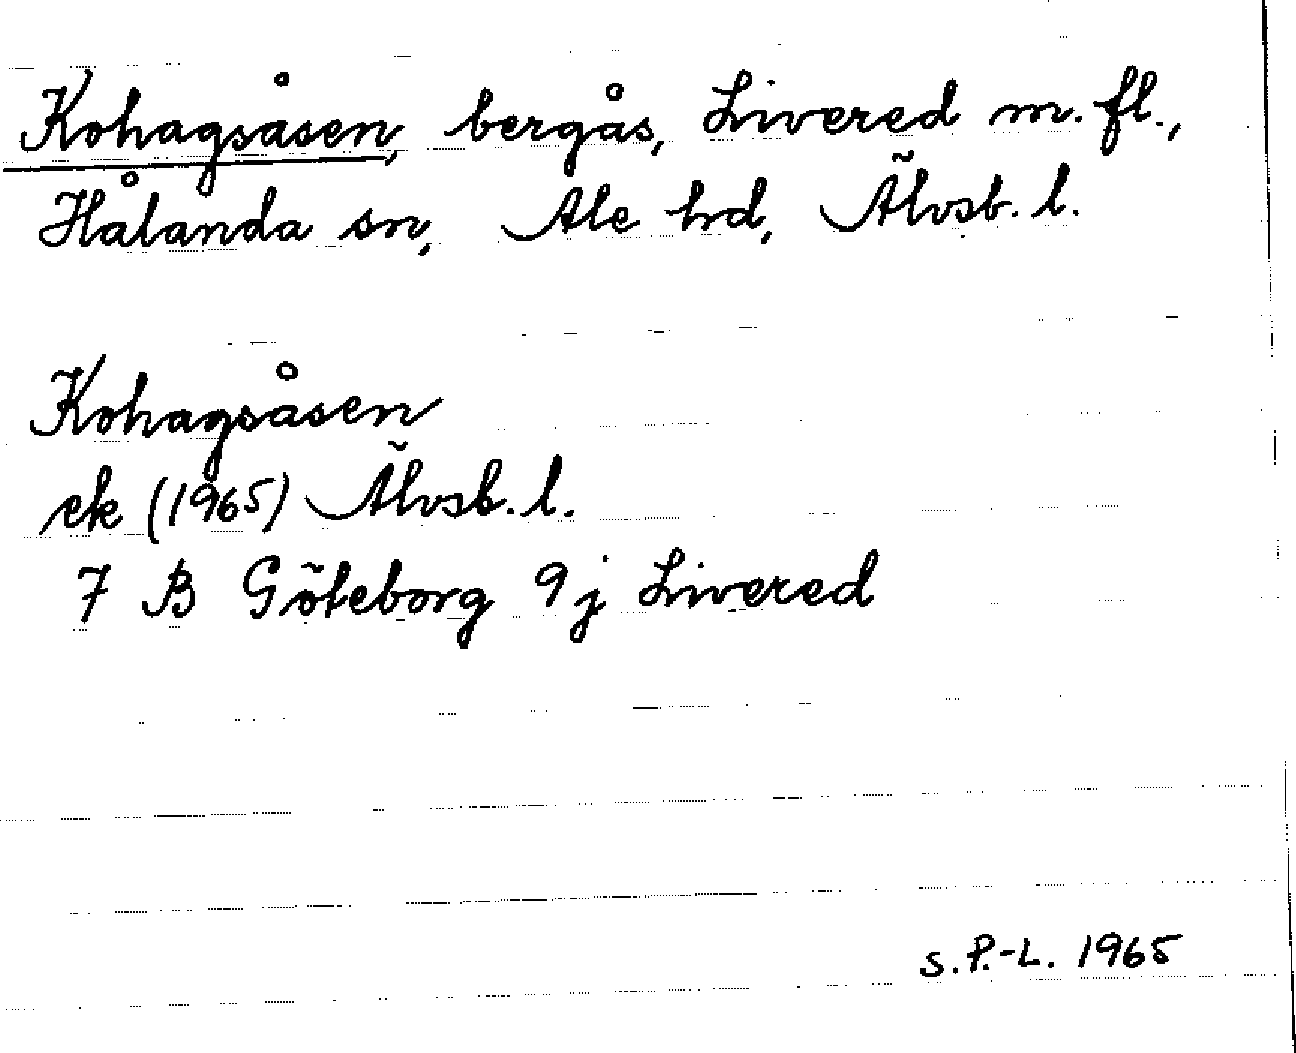 Kohagsåsen, bergås, Livered m. fl.,
Hålanda sn, Ale hd, Älvsb. l.
Kohagsåsen
ek (1965) Älvsb. l.
7 B Göteborg 9j Livered
S. P.-L. 1965